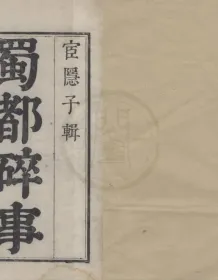 宦隱子輯
蜀都碎事